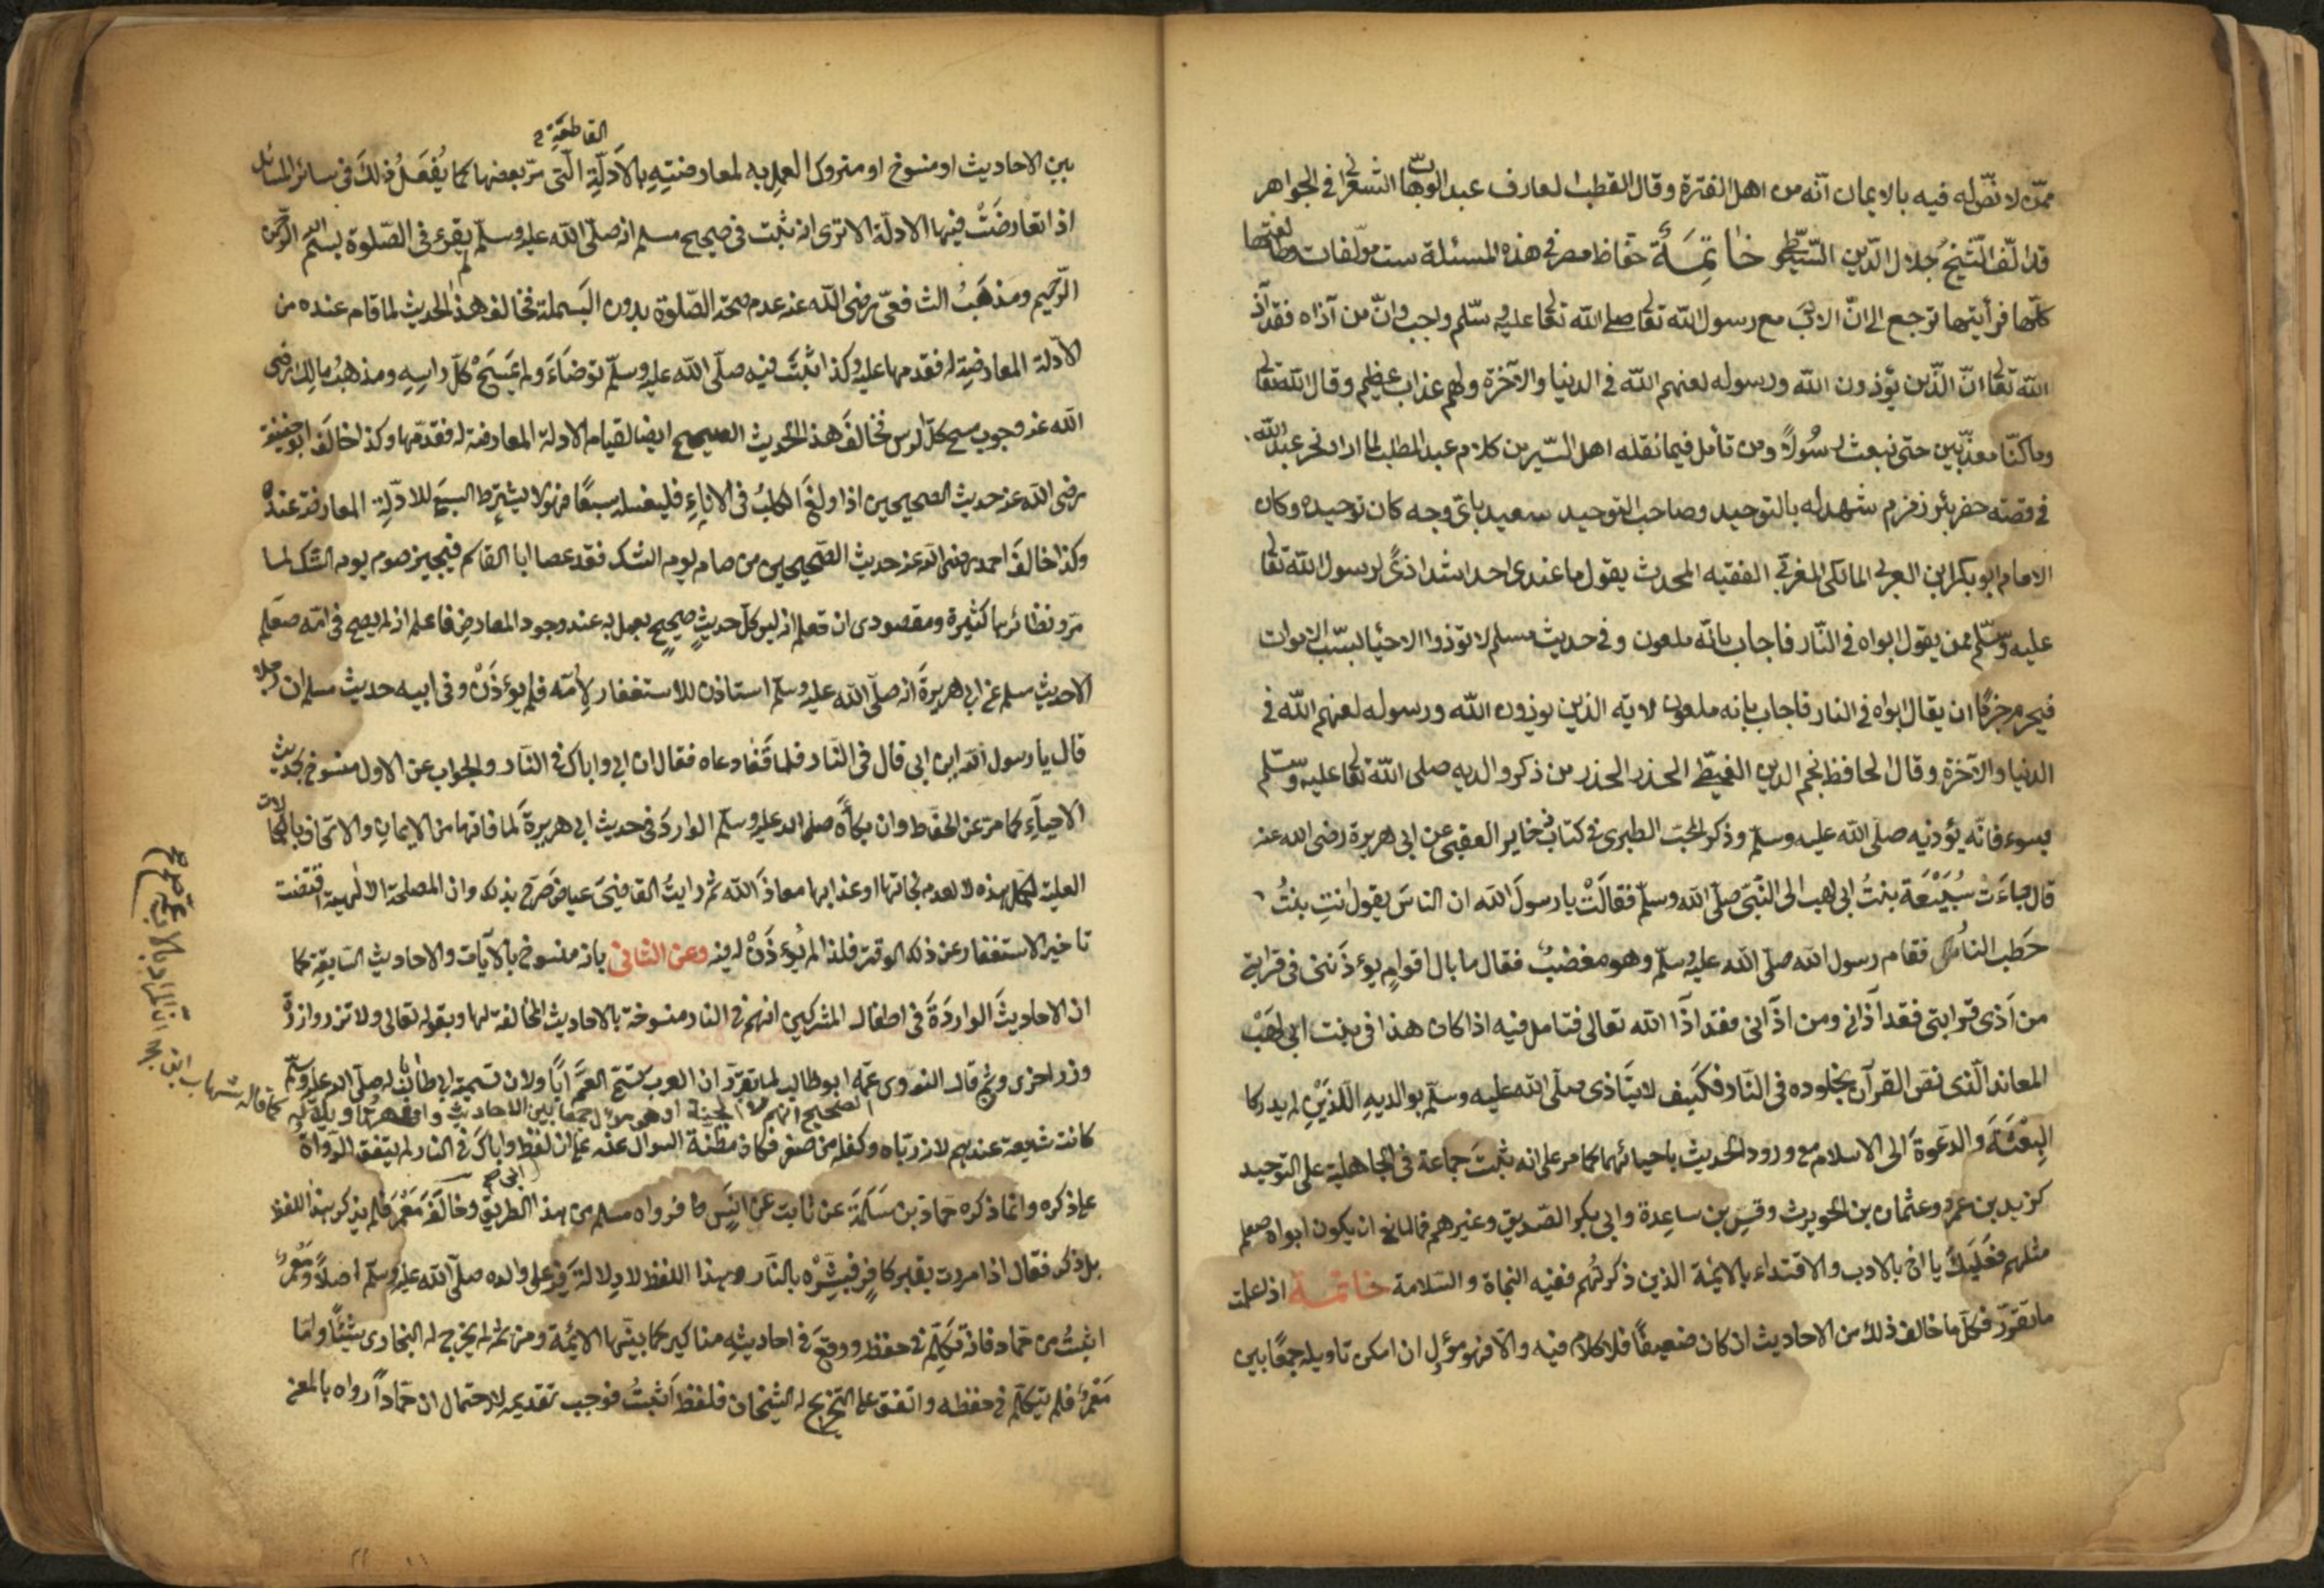 ممّن لا نصّ له فيه بالايمان انّه من اهل الفترة وقال القطب العارف عبد الوهاب الشعرانى في الجواهر
قد الّف الشيخ جلال الدّين السّيوطى خاتمة حفّاظ مصر فى هذه المسئلة ست مؤلفات وطالعتها
كلّها فرأيتها ترجع الى انّ الادب مع رسول الله تعالى صلى الله تعالى عليه وسلّم واجب وانّ من آذاه فقد آذى
الله تعالى انّ الّذين يؤذون الله ورسوله لعنهم الله فى الدنيا والآخرة ولهم عذاب عظيم وقال الله تعالى
وما كنّا معذّبين حتى نبعث رسُولاً ومن تأمل فيما نقله اهل السّير من كلام عبد المطلب لما اراد نحر عبد الله
فى قصته حفر بئر زمزم شهد له بالتوحيد وصاحب التوحيد سعيد باىّ وجه كان توحيده وكان
الامام ابو بكر ابن العربى المالكى المغربى الفقيه المحدث يقول ما عندى احد اشد اذىً لرسول الله تعالى
عليه وسّلم ممن يقول ابواه فى النّار فاجاب بانّه ملعون وفى حديث مسلم لا تؤذوا الاحيأ بسبّ الاموات
فيحرم جزمًا ان يقال ابواه فى النار فاجاب بانه ملعون لاية الذين يوذون الله ورسوله لعنهم الله فى
الدنيا والآخرة وقال الحافظ نجم الدين الغيطى الحذر الحذر من ذكر والديه صلى الله تعالى عليه وسّلم
بسوء فانّه يؤذيه صلّى الله عليه وسلّم وذكر المحبّ الطبرى فى كتاب ذخاير العقبى عن ابى هريرة رضى الله عنه
قال جاءَت سُبَيْعَة بنتُ ابى لهب الى النّبى صلّى الله وسلّم فقالَتْ يا رسولَ الله ان الناسَ يقول انتِ بنتُ
حَطب النار فقام رسول الله صلّى الله عليه وسلّم وهو مغضبٌ فقال ما بال اقوامٍ يؤذوننى فى قرابتى
من اَذى قرابتى فقد آذانى ومن اذآنى فقد اذَا الله تعالى فتامل فيه اذا كان هذا فى بنت ابى لَهَبْ
المعاند الّذى نصّ القرآن بخلوده فى النّار فكيف لا يتَاذى صلّى الله عليه وسلّم بوالديهِ اللذَيْنِ لم يدركا
البِعْثَةَ والدعْوةَ الى الاسلام مع ورود الحديث باحيائهما كما مر على انه ثبتَ جماعة فى الجاهلية على التوحيد
كزيد بن عمرو وعثمان بن الحويرث وقس بن ساعِدة وابى بكر الصّديق وغيرهم فما المانع ان يكون ابواه صعلم
مثلهم فعَلَيكَ يا اخى بالادب والاقتداء بالايمّة الذين ذكرتُهم ففيه النجاة والسّلامة خاتمة اذ اعلمت
ما تقرّر فكلّ ما خالف ذلك من الاحاديث ان كان ضعيفًا فلا كلام فيه والّا فهو مؤل ان امكن تاويله جمعًا بين
القاطعَةِ
بين الاحاديث او منسوخ او متروك العمل به لمعارضتِهِ بالاَدلّةِ الّتى مرّ بعضها كما يُفعَلُ ذلكَ فى سائر المسائل
اذا تعارضَتْ فيها الادلّة الا ترى انه ثبت فى صحيح مسلم انه صلّى الله عليه وسلّم لم يقرئ فى الصّلوة بسم الله الرّحمن
الرّحيم ومذهَبُ الشافعىّ رضى الله عنه عدم صحة الصّلوة بدون البَسملة فخالف هذا الحديث لما قام عنده من
الادلة المعارضِة له فقدمها عليه وكذا ثبَت فيه صلّى الله عليه وسلّم توضَاءَ ولم يمسَحْ كلّ راسِهِ ومذهبُ مالِك رضى
الله عنه وجوب مسح كلّ الرس فخالفَ هذا الحديث الصحيح ايضا لقيام الادلة المعارضة له فقدّمها وكذا خالَفَ ابو حنيفة
رضى الله عنه حديث الصحيحين اذا ولغَ الكلبُ فى الاناءِ فليغسله سبعًا فهو لا يشترط السبعَ للادّلةِ المعارضة عنده
وكذا خالفَ احمد رضى الله عنه حديث الصّحيحين من صام يوم الشك فقد عصا ابا القاسم فيجيز صوم يوم الشّك لما
مرّ ونظائرها كثيرة ومقصودى ان تعلم انه ليس كلّ حديثٍ صحيحٍ يعمل به عند وجود المعارضِ فاعلم انه لم يصح فى امّه صعلم
الا حديث مسلم عن ابى هريرةَ انه صلّى الله عليه وسلّم استاذن للاستغفار لِاُمّه فلم يوءذَنْ وفى ابيه حديث مسلم ان رجلا
قال يا رسول الله اين ابى قال فى النّار فلما قَفا دعاه فقال ان ابى واباك فى النّار والجواب عن الاول منسوخ بحديث
الاحيآءِ كما مرّ عن الحفّاظ وان بكأَه صلى الله عليه وسلّم الواردَ فى حديث ابى هريرةَ لما فاتها من الايمان والاتحاف بالكمالات
العلية لكل هذه لا لعدم نجاتها او عذابها معاذَ الله ثم رايتُ القاضِىَ عياض صَرّح بذلك وان المصلحة الالهية اقتضت
تاخير الاستغفار عن ذلك الوقت فلذا لم يُوءذَنْ له فيه وعن الثانى بانه منسوخ بالآيات والاحاديث السّابقة كما
ان الاحاديثَ الواردَةَ فى اطفال المشركين انهم فى النار منسوخة بالاحاديث المخالفة لها وبقوله تعالى ولا تزر وازرةٌ
وزر اخرى وثم قال النووى عمّه ابو طالب لما تقرّر ان العرب تسمّى العمَّ اباً ولان تسمية ابى طالب له صلّى الله عليه وسلّم
الصحيح انهم الجنة او هو مؤل جمعًا بين الاحاديث
كانت شيعة عندهم لانه ربّاه وكفله من صغر فكان مظنّة السوال عنه على ان لفظ واباكَ فى النار لم يتفق الرّواة
على ذكره وانما ذكره حمّاد بن سَلَمَة عن ثابت عن انسٍ فرواه مسلم من هذا الطريق وخالَفه مَعْمَر فلم يذكر بهذا اللفظ
بل ذكر فقال اذا مررت بقبر كافِرٍ فبَشِّرْه بالنار وبهذا اللفظ لا دِلالة فيه على والده صلّى الله عليه وسلّم اصلاً ومَعْمَرُ
اثبتُ من حمّاد فانه تكلّم فى حفظه ووقعَ فى احاديثِهِ مناكير كما بيّنها الايمّة ومن ثم لم يخرج له البخارى شيئًا وامّا
مَعْمَرُ فلم يتكلّم فى حفظه واتفق على التخريج له الشيخان فلفظه اَثبتُ فوجب تقديمه لاحتمال ان حمّاداً رواه بالمعنى